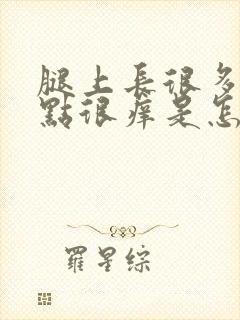 腿上長很多
點很痒是怎
羅星綜